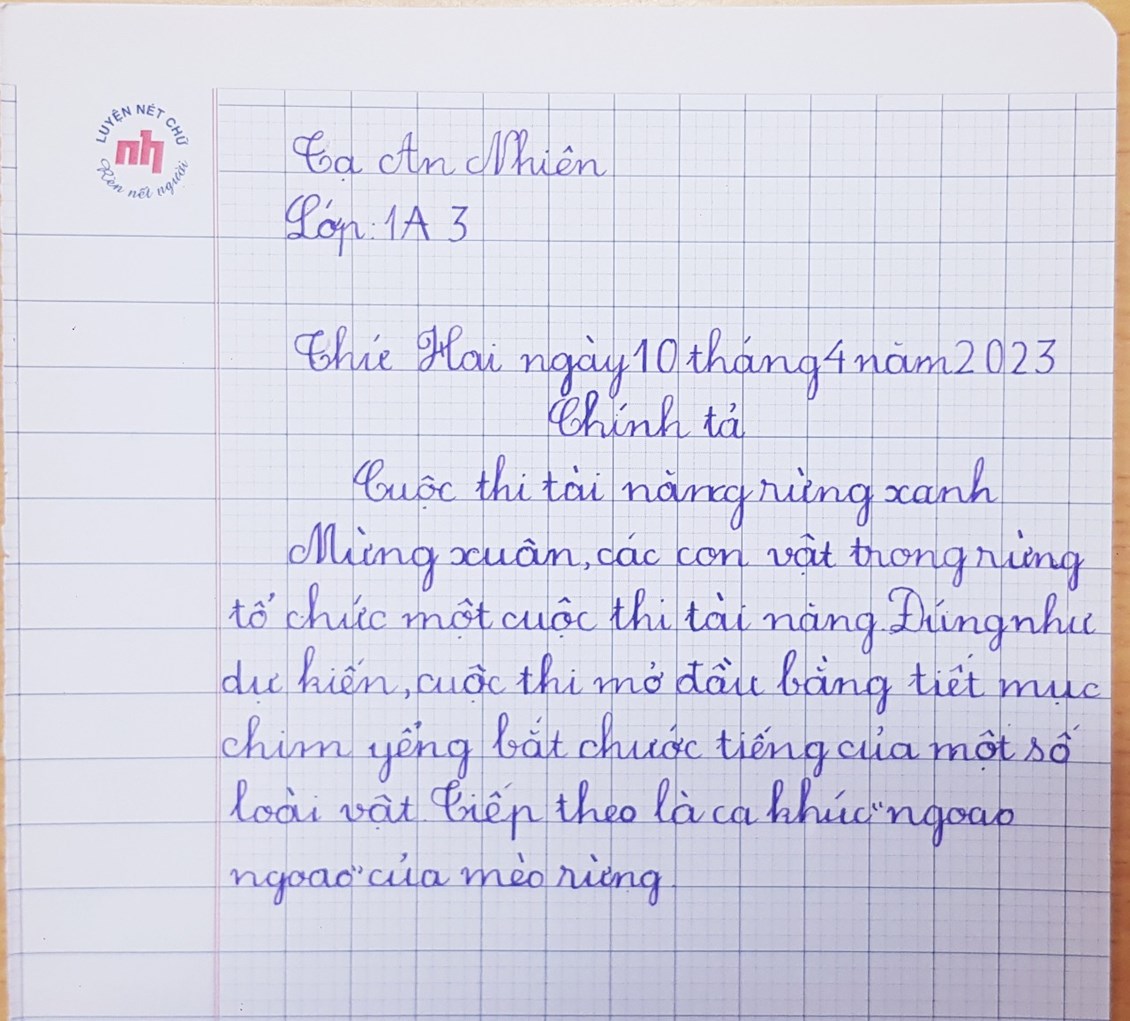 LUYỆN NÉT CHỮ
nh
Rèn nết người
Tạ An Nhiên
Lớp: 1A 3
Thứ Hai ngày 10 tháng 4 năm 2023
Chính tả
Cuộc thi tài năng rừng xanh
Mừng xuân, các con vật trong rừng
tổ chức một cuộc thi tài năng. Đúng như
dự kiến, cuộc thi mở đầu bằng tiết mục
chim yểng bắt chước tiếng của một số
loài vật. Tiếp theo là ca khúc "ngoao
ngoao" của mèo rừng